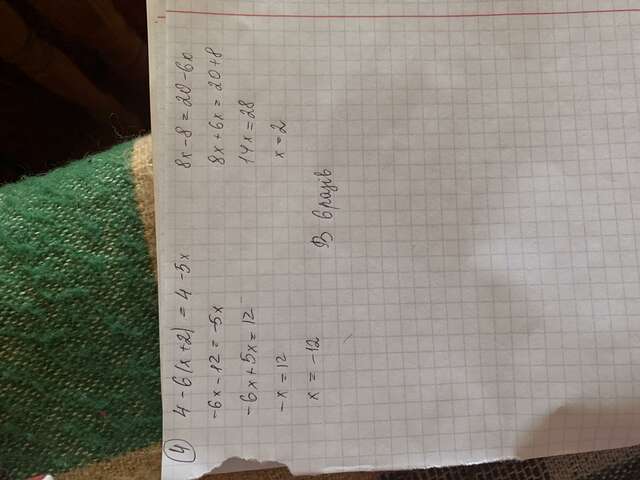 4
4 - 6(x+2) = 4 - 5x
-6x - 12 = -5x
-6x + 5x = 12
-x = 12
x = -12
8x - 8 = 20 - 6x
8x + 6x = 20 + 8
14x = 28
x = 2
В 6 разів